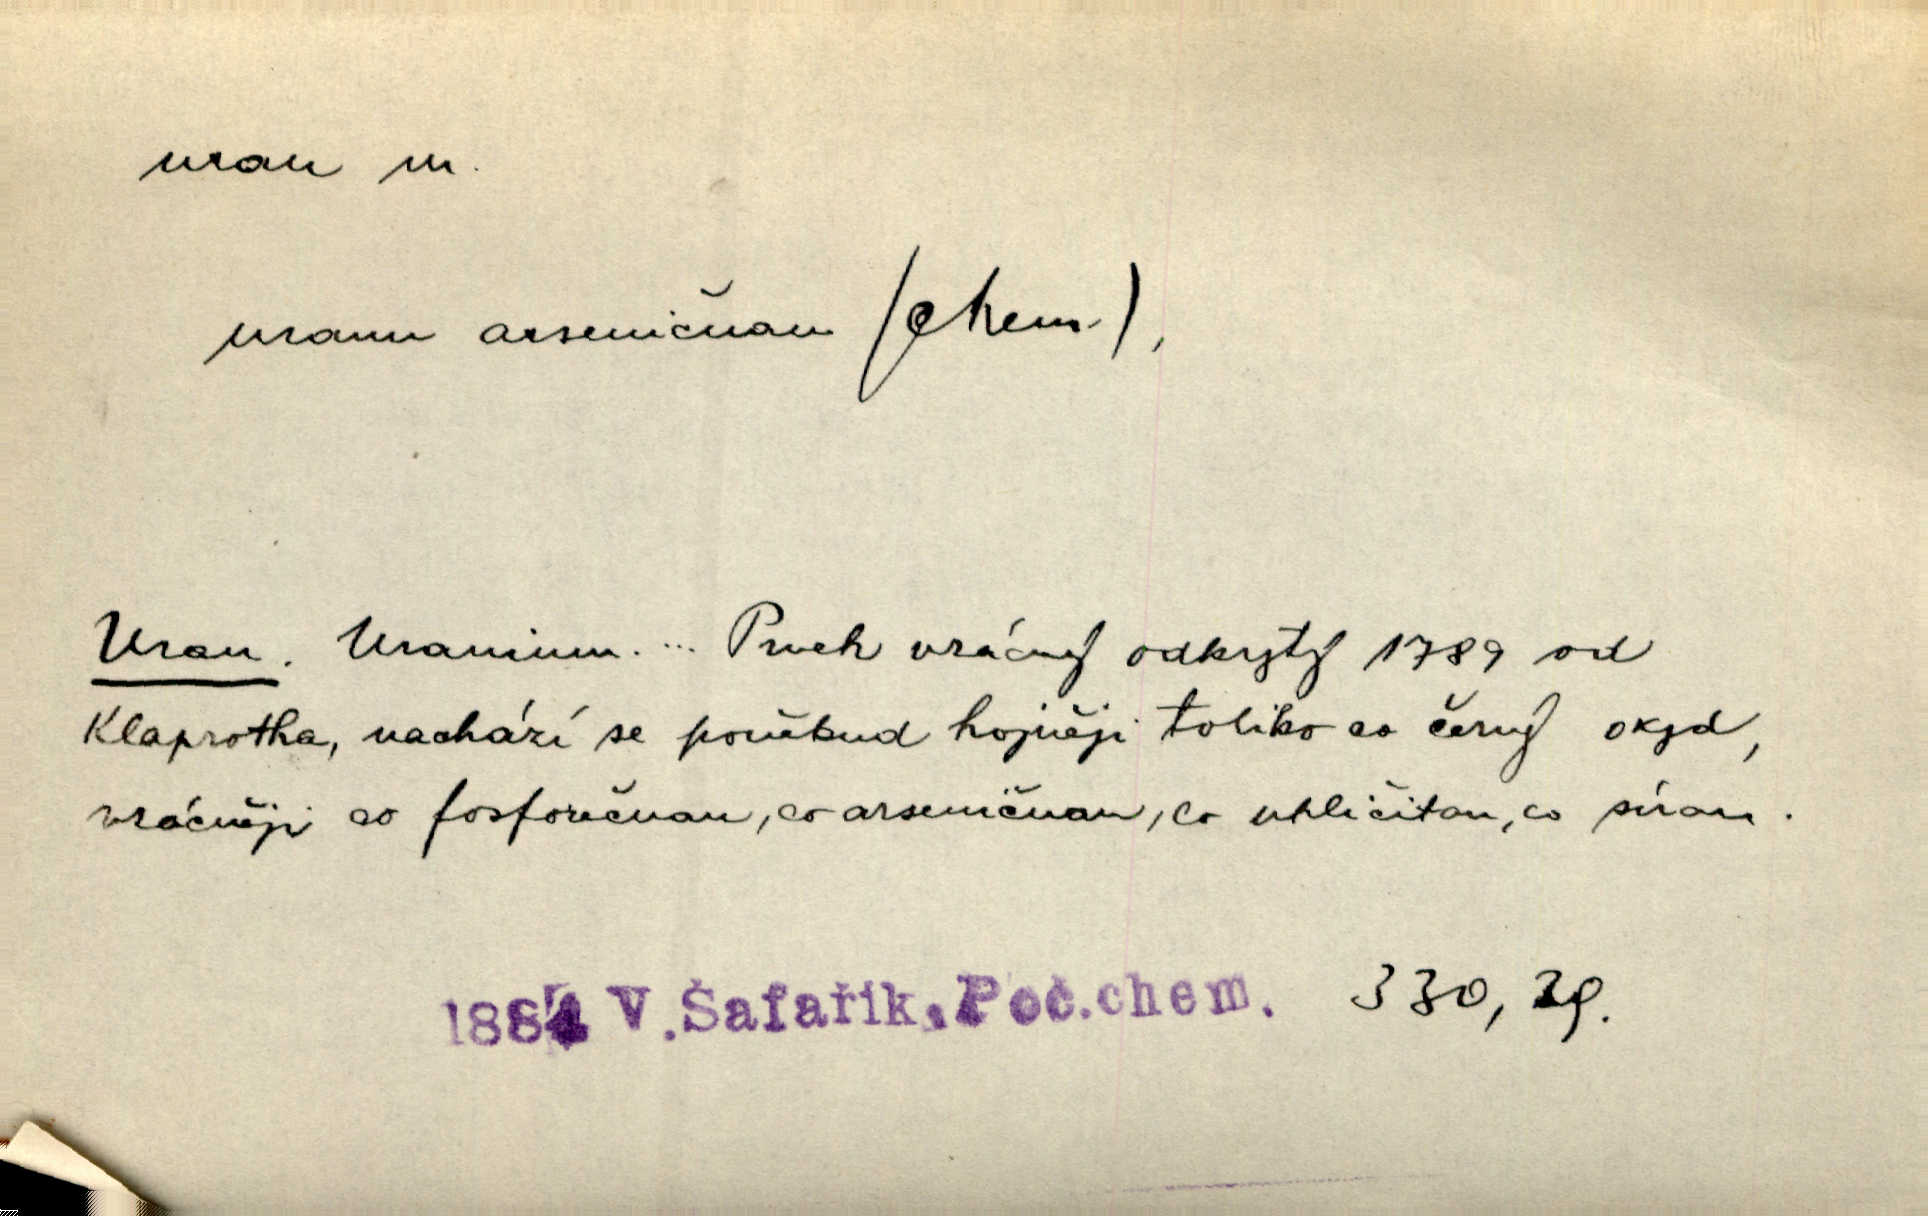 uran m.
uranu arseničnan (chem.),
Uran. Uranium. ... Prvek vzácný odkrytý 1789 od
Klaprotha, nachází se poněkud hojněji toliko co černý okyd,
vzácněji co fosforečnan, co arseničnan, co uhličitan, co síran.
1884 V. Šafařík, Poč. chem. 330, 29.